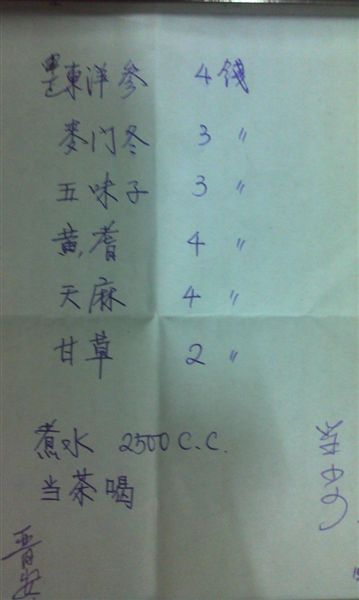 東洋參 4 錢
麥门冬 3 〃
五味子 3 〃
黃耆 4 〃
天麻 4 〃
甘草 2 〃
煮水 2500 C.C.
当茶喝
晋安